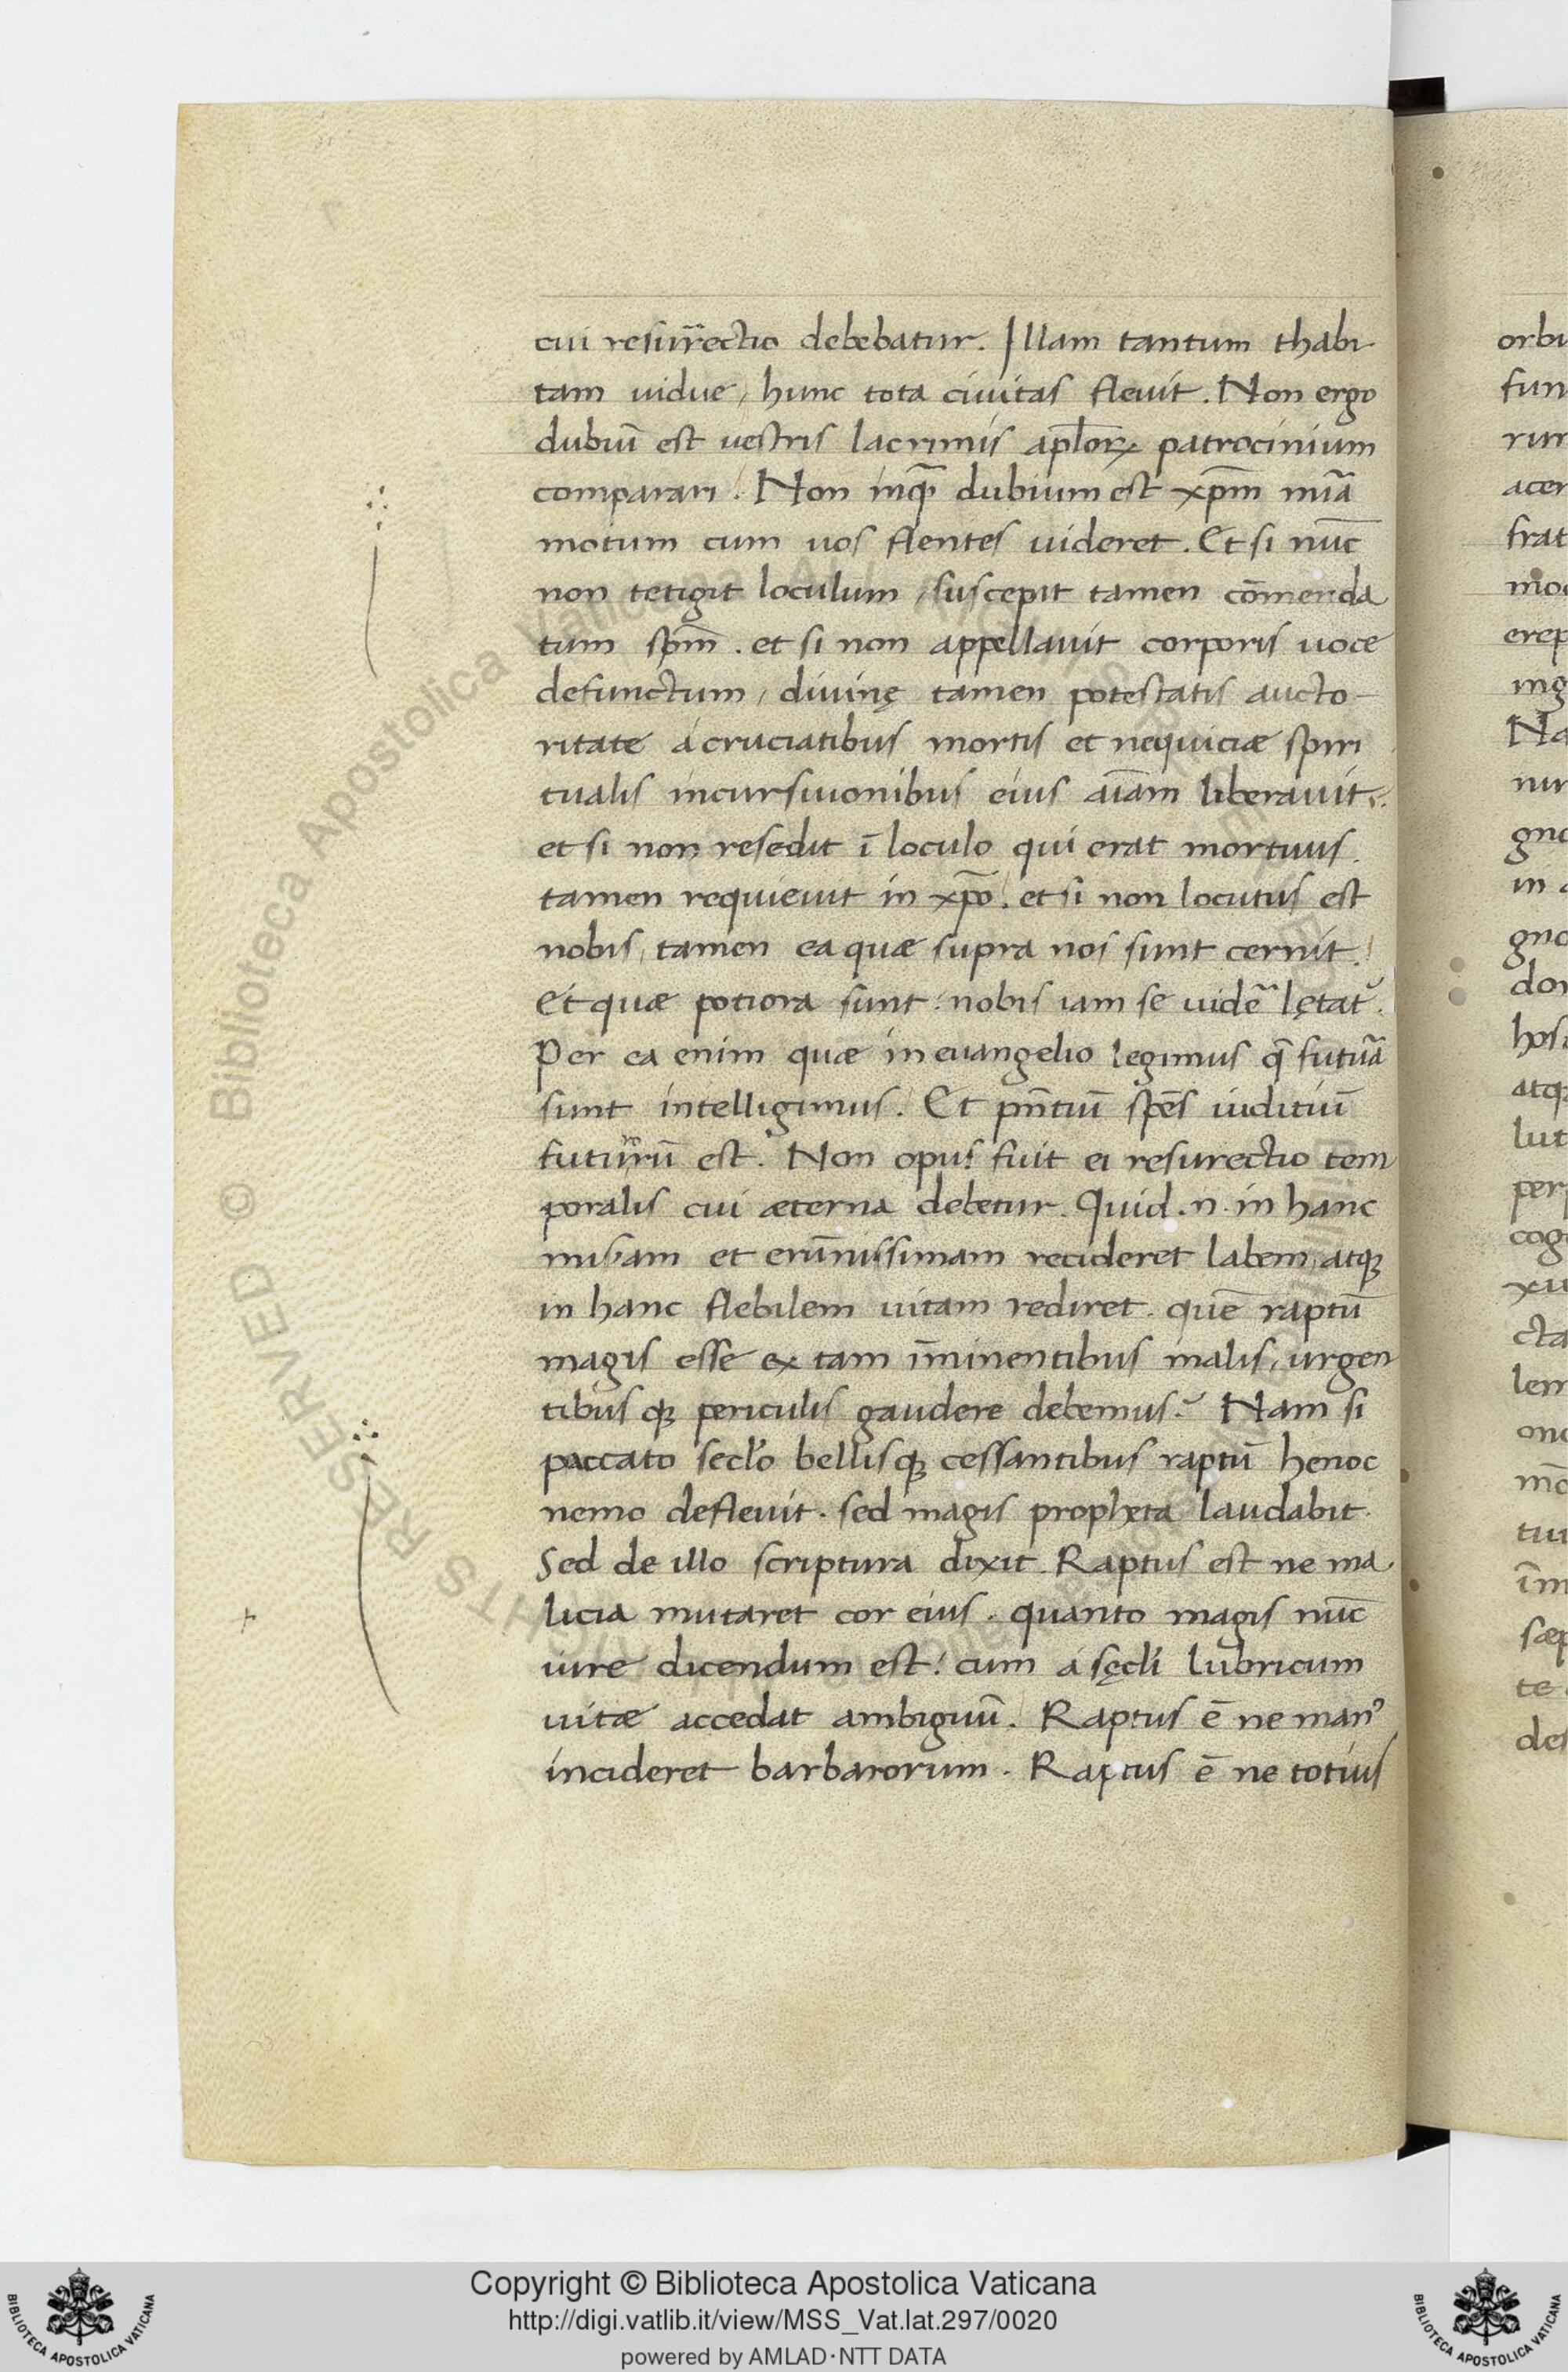 cui resurrectio debebatur. Illam tantum thabi
tam uidue, hunc tota ciuitas fleuit. Non ergo
dubiū est uestris lacrimis apl̄oꝝ patrocinium
comparari. Non inqͣ dubium est xp̄m mīa
motum cum uos flentes uideret. Et si nūc
non tetigit loculum, suscepit tamen cōmenda
tum sp̄m. et si non appellauit corporis uoce
defunctum, diuinę tamen potestatis aucto-
ritate á cruciatibus mortis et nequiciæ spiri
tualis incursiuonibus eius aīam liberauit.
et si non resedit ī loculo qui erat mortuus.
tamen requieuit in xp̄o. et si non locutus est
nobis, tamen ea quæ supra nos sunt cernit.
Et quæ potiora sunt nobis iam se uidē lętat᷑.
Per ea enim quæ in euangelio legimus q̄ futūa
sunt intelligimus. Et pn̄tiū spēs iuditiū
futurū est. Non opus fuit ei resurectio tem
poralis cui æterna debetur. Quid .n. in hanc
mis̓am et erūnissimam recideret labem, atqꝫ
in hanc flebilem uitam rediret. quē raptū
magis esse ex tam īminentibus malis, urgen
tibus qꝫ periculis gaudere debemus? Nam si
paccato secl̓o bellisqꝫ cessantibus raptū henoc
nemo defleuit. sed magis propheta laudabit.
Sed de illo scriptura dixit. Raptus est ne ma
licia mutaret cor eius. quanto magis nūc
iure dicendum est! cum á sęcl̓i lubricum
uitæ accedat ambiguū. Raptus ē ne manꝰ
incideret barbarorum. Raptus ē ne totius
orbi
fun
rum
acer
frat
mod
erep
ing
Na
nir
gno
in a
gno
don
hos
atqꝫ
lut
per
cog
xu
cta
lem
ono
mō
tui
īm
sæp
te
def
Biblioteca Apostolica Vaticana
RIGHTS RESERVED ©
Copyright © Biblioteca Apostolica Vaticana
http://digi.vatlib.it/view/MSS_Vat.lat.297/0020
powered by AMLAD·NTT DATA
BIBLIOTECA APOSTOLICA VATICANA
BIBLIOTECA APOSTOLICA VATICANA